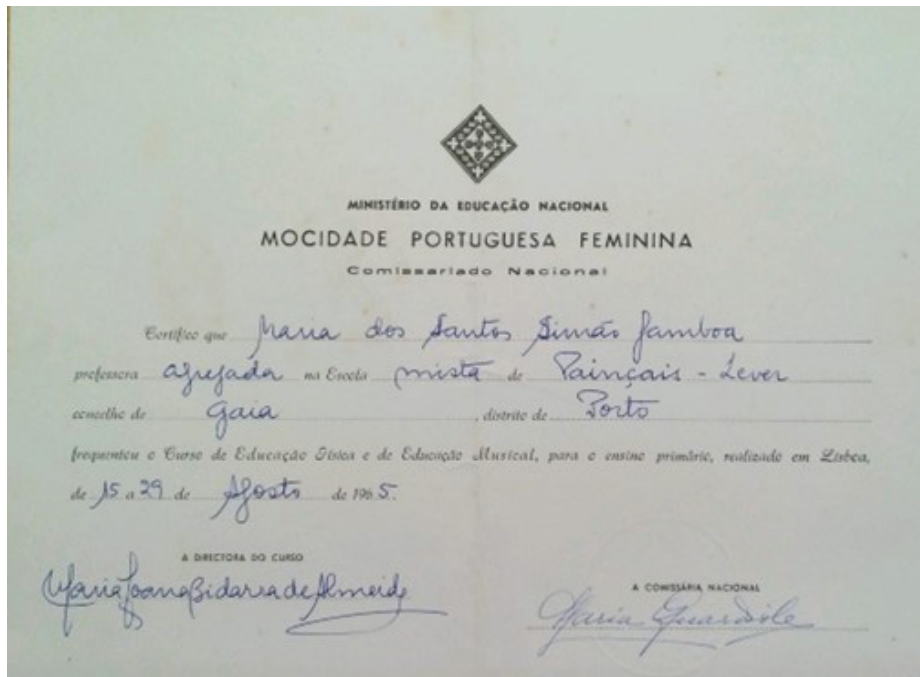 MINISTÉRIO DA EDUCAÇÃO NACIONAL
MOCIDADE PORTUGUESA FEMININA
Comissariado Nacional
Certifico que Maria dos Santos Simão Gamboa
professora agregada na Escola mista de Painçais - Lever
concelho de Gaia, distrito de Porto
frequentou o Curso de Educação Física e de Educação Musical, para o ensino primário, realizado em Lisboa,
de 15 a 29 de Agosto de 1965.
A DIRECTORA DO CURSO
Maria Joana Bidarra de Almeida
A COMISSÁRIA NACIONAL
Maria Guardiola